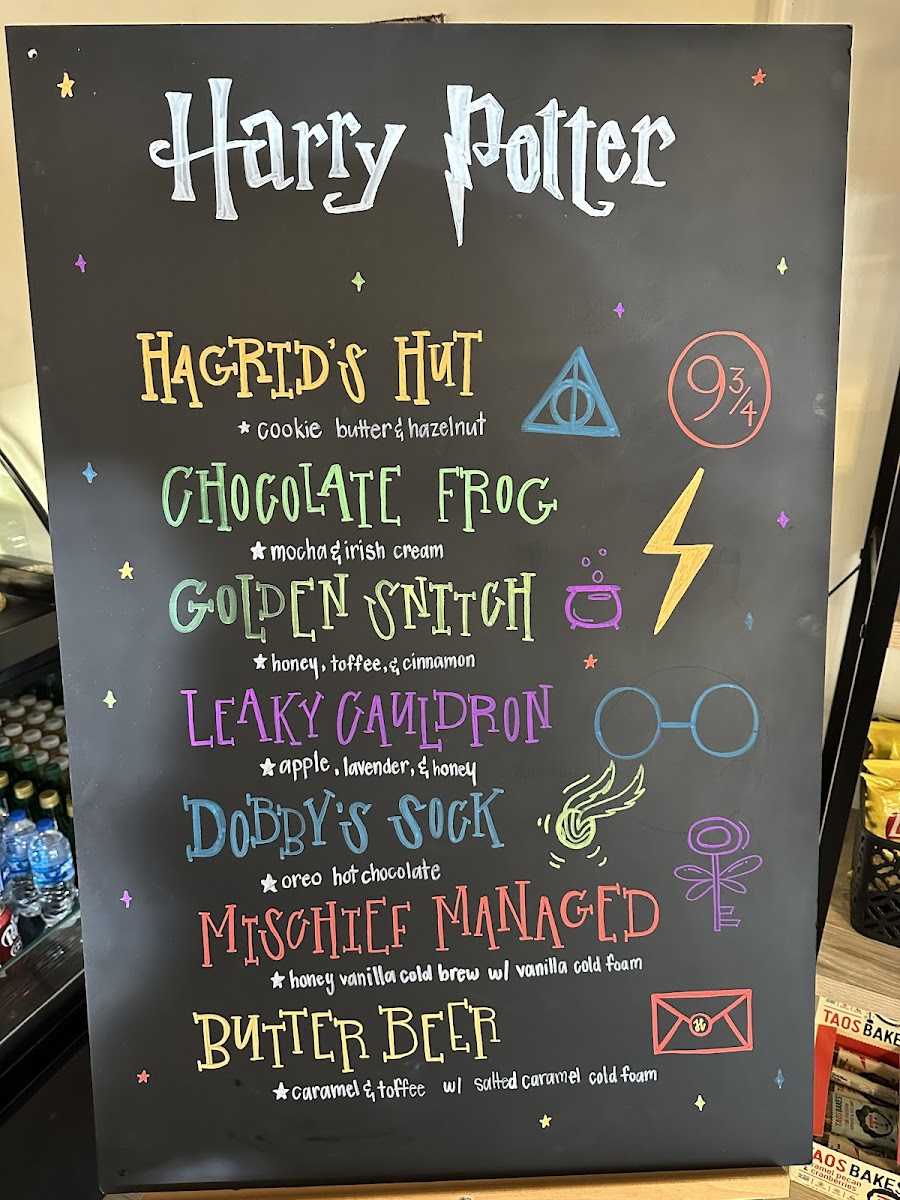 Harry Potter
HAGRID'S HUT
cookie butter & hazelnut
9 3/4
CHOCOLATE FROG
mocha & irish cream
GOLDEN SNITCH
honey, toffee, & cinnamon
LEAKY CAULDRON
apple, lavender, & honey
DOBBY'S SOCK
oreo hot chocolate
MISCHIEF MANAGED
honey vanilla cold brew w/ vanilla cold foam
BUTTER BEER
H
caramel & toffee w/ salted caramel cold foam
TAOS BAKE
TAOS BAKES